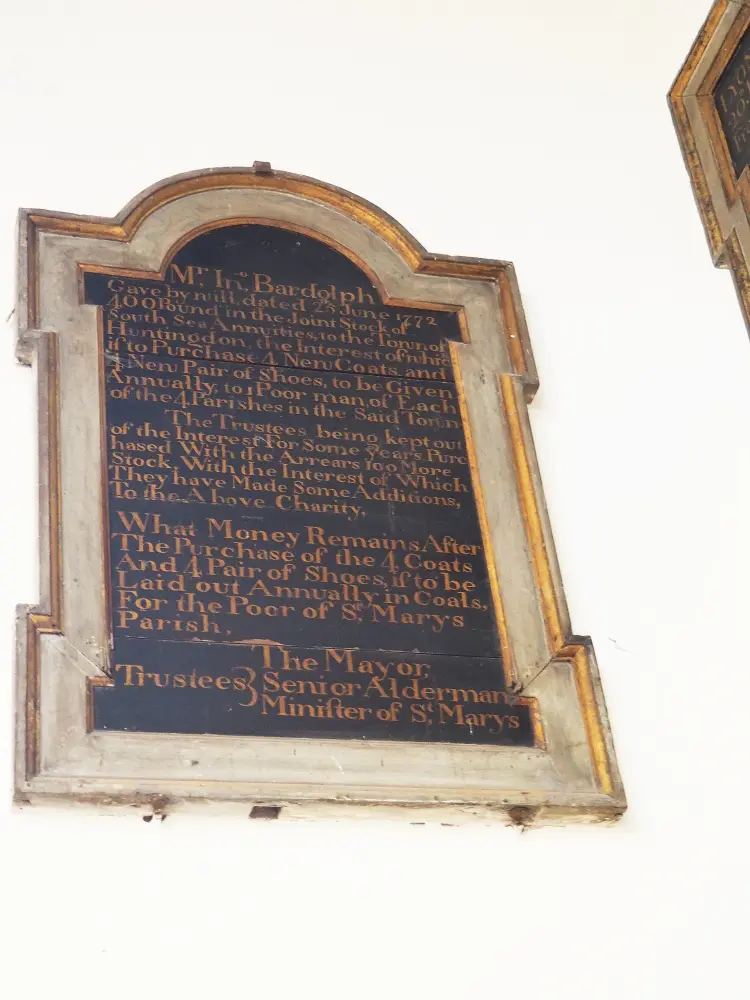 Mr. Jno. Bardolph
Gave by will, dated 25 June 1772
400 Pound in the Joint Stock of
South Sea Annuities, to the Town of
Huntingdon, the Interest of whic
is to Purchase 4 New Coats, and
4 New Pair of Shoes, to be Given
Annually, to 1 Poor man, of Each
of the 4 Parishes in the Said Town
The Trustees being kept out
of the Interest For Some years Purc
hased With the Arrears 100 More
Stock, With the Interest of Which
They have Made Some Additions,
To the Above Charity,
What Money Remains After
The Purchase of the 4 Coats
And 4 Pair of Shoes, is to be
Laid out Annually in Coals,
For the Poor of St. Marys
Parish,
The Mayor,
Trustees } Senior Alderman
Miniſter of St. Marys